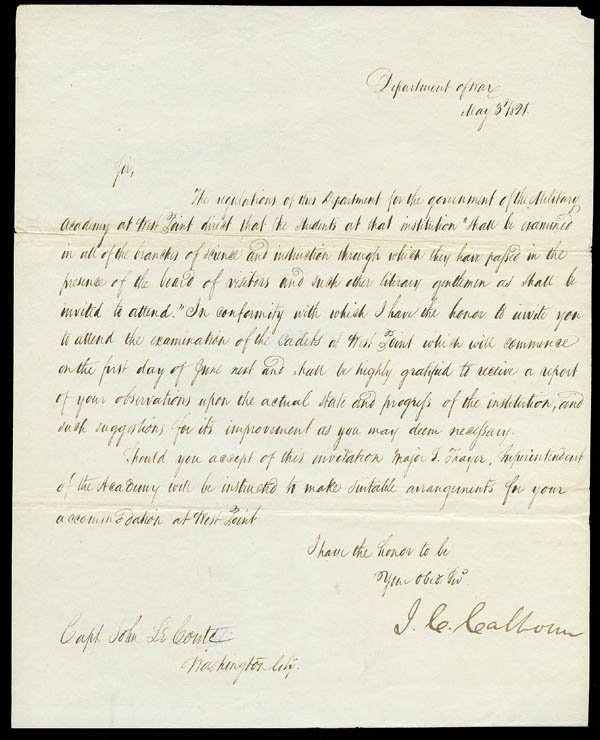 Department of War
May 3d 1821.
Sir,
The regulations of this Department for the government of the Military
Academy at West Point direct that the students at that institution "shall be examined
in all of the branches of science and instruction through which they have passed in the
presence of the board of visitors and such other literary gentlemen as shall be
invited to attend." In conformity with which I have the honor to invite you
to attend the examination of the cadets at West Point which will commence
on the first day of June next and shall be highly gratified to receive a report
of your observations upon the actual state and progress of the institution, and
such suggestions for its improvement as you may deem necessary.
Should you accept of this invitation Major S. Thayer, Superintendent
of the Academy will be instructed to make suitable arrangements for your
accommodation at West Point
I have the honor to be
Your Obed. Sv.
J. C. Calhoun
Capt. John Le Conte
Washington City.